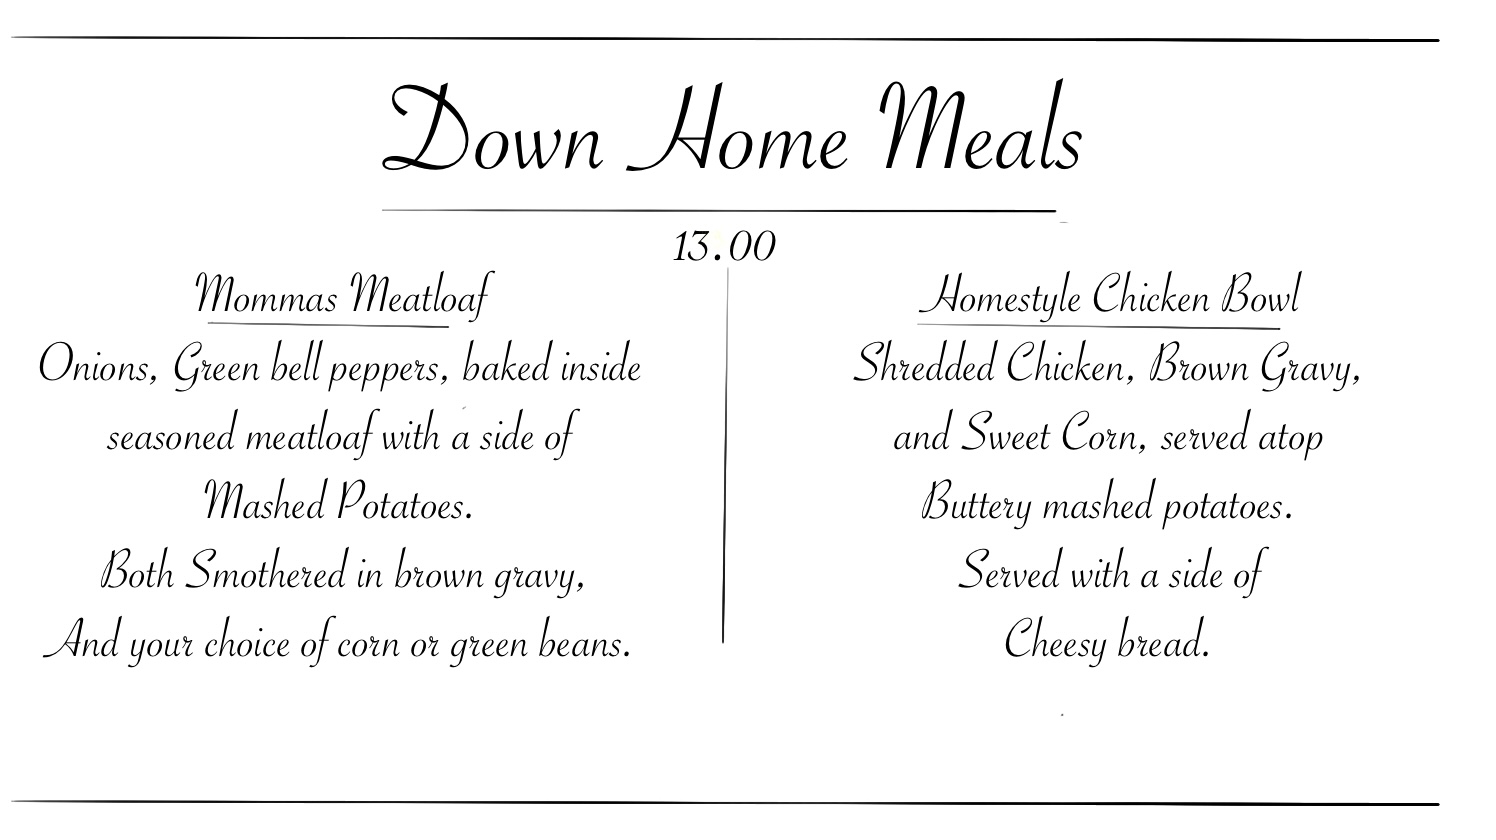 Down Home Meals
13.00
Mommas Meatloaf
Onions, Green bell peppers, baked inside
seasoned meatloaf with a side of
Mashed Potatoes.
Both Smothered in brown gravy,
And your choice of corn or green beans.
Homestyle Chicken Bowl
Shredded Chicken, Brown Gravy,
and Sweet Corn, served atop
Buttery mashed potatoes.
Served with a side of
Cheesy bread.